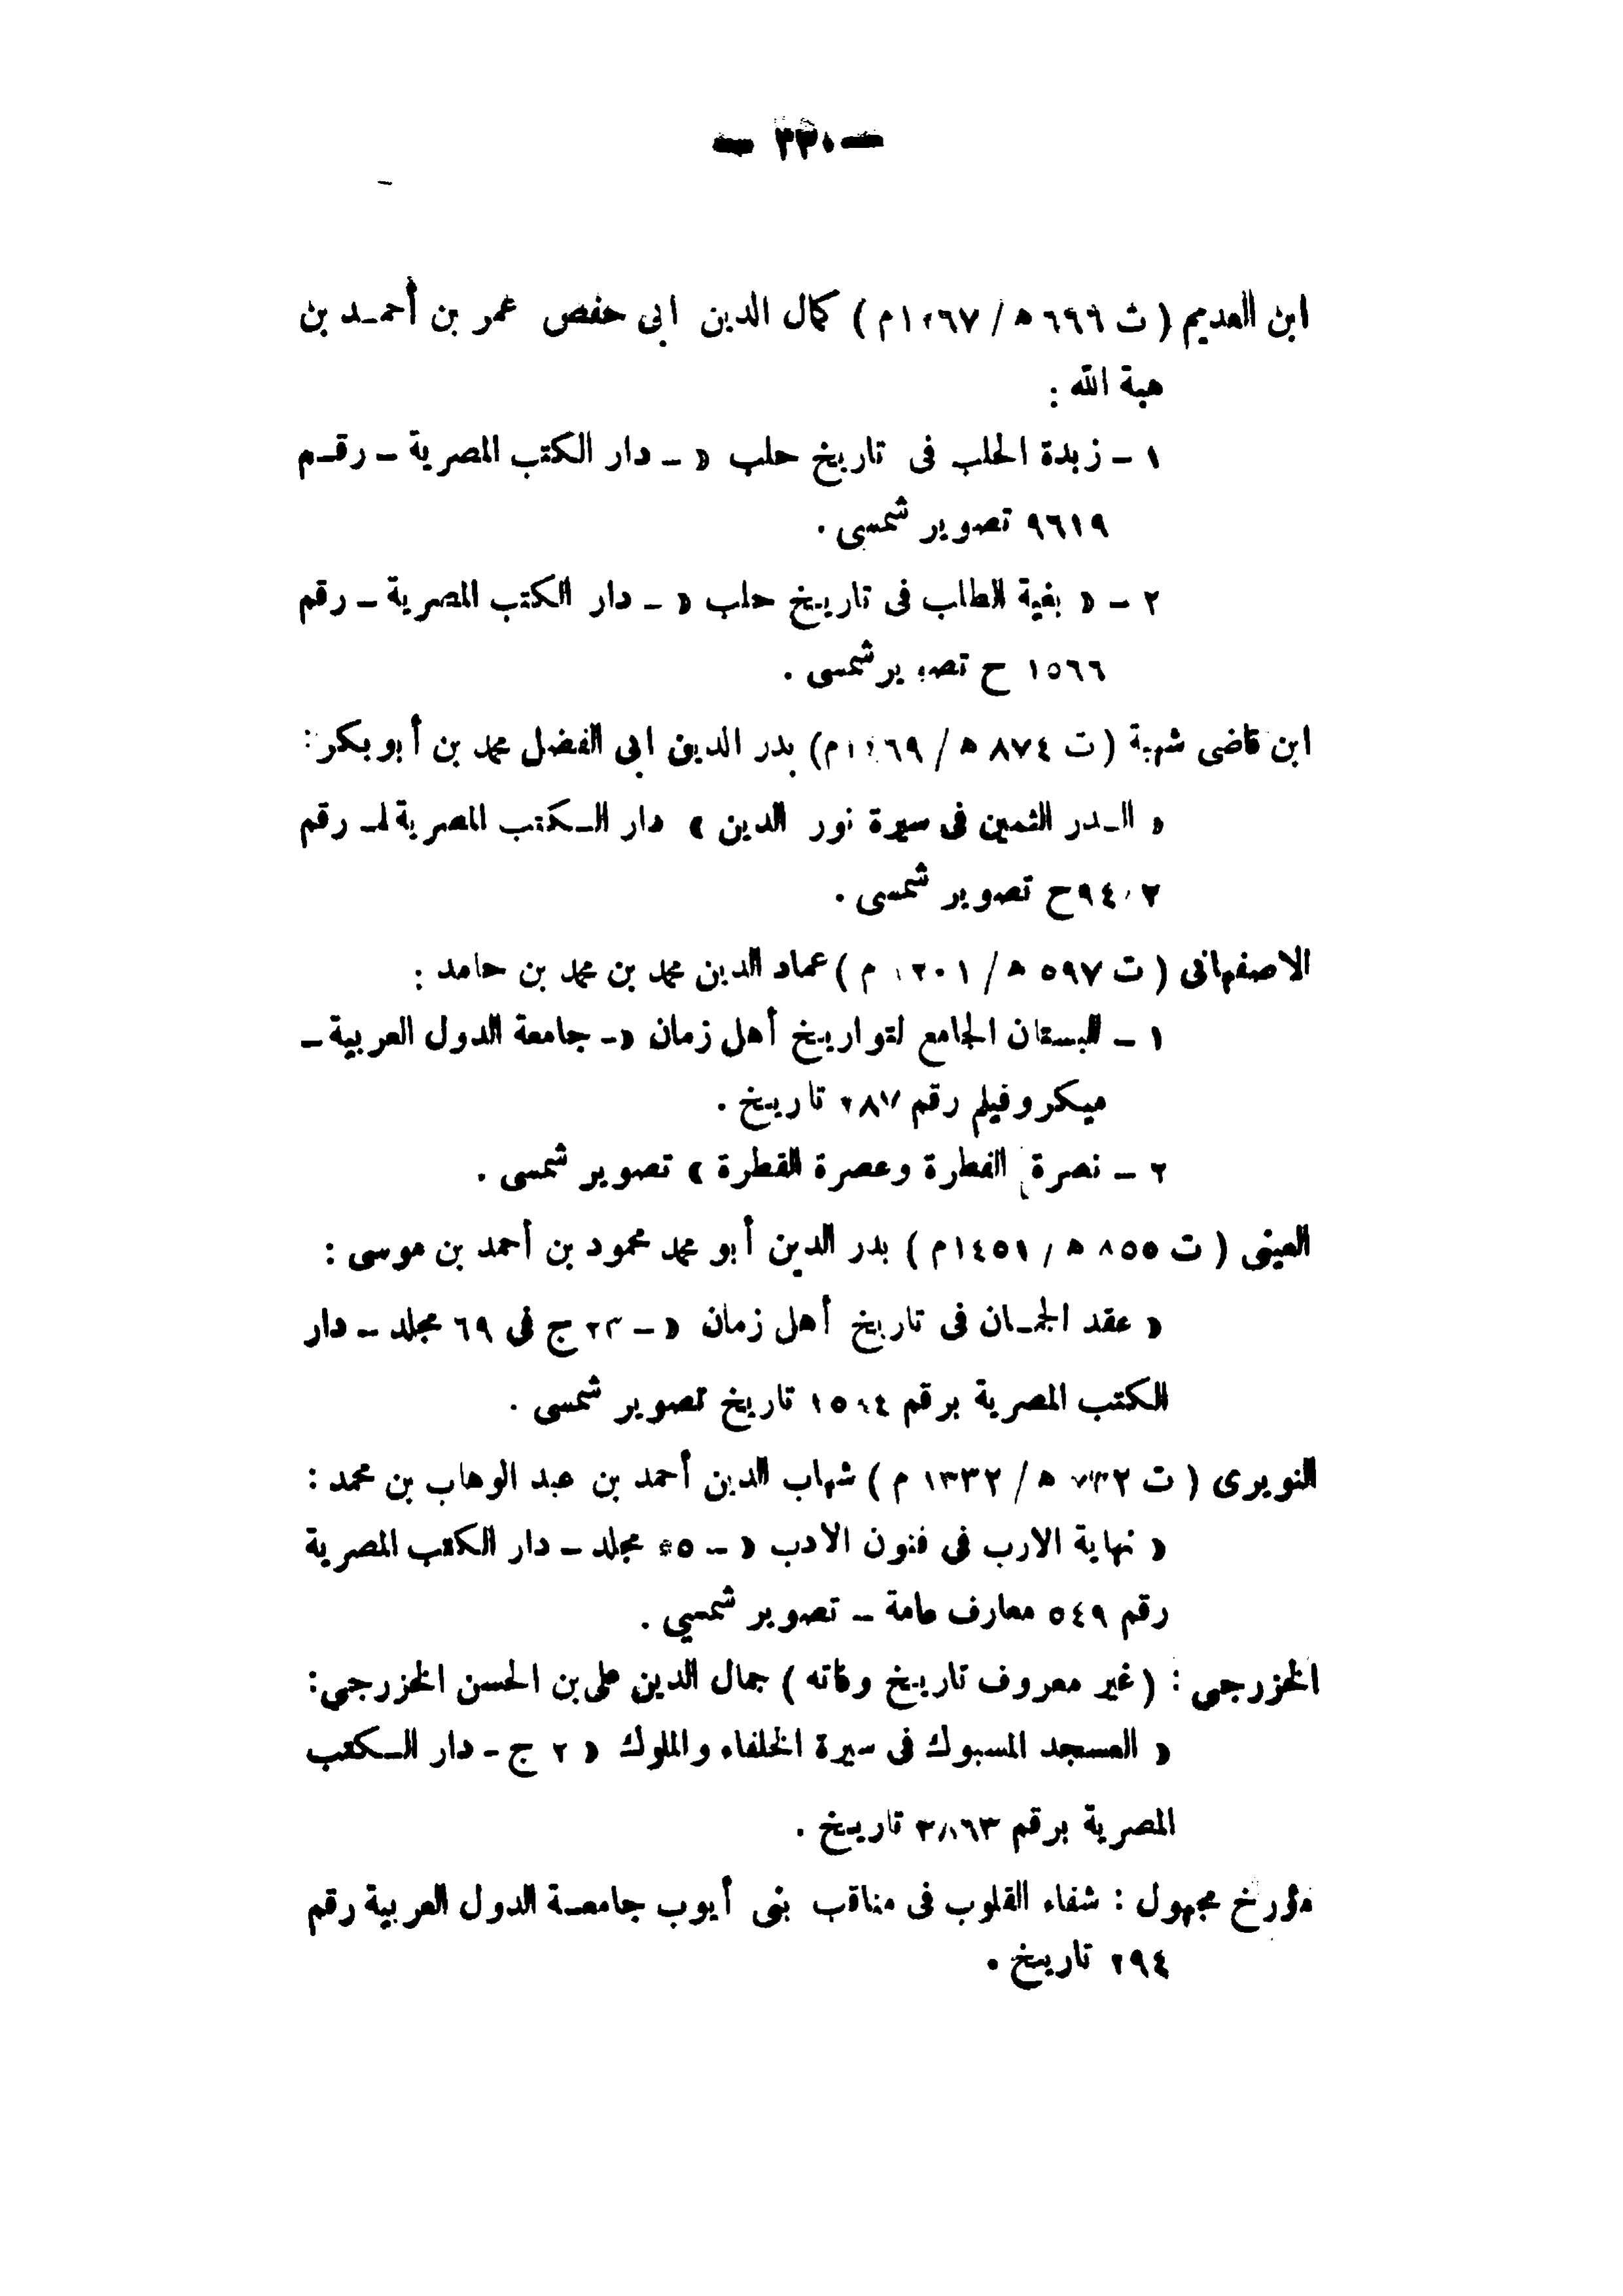 — ٣٣٠ —
ابن العديم ( ت ٦٦٦ ه / ١٢٦٧م ) كمال الدين ابى حفص عمر بن أحمـد بن
هبة الله :
١ ـ زبدة الحلب فى تاريخ حلب « ـ دار الكتب المصرية ـ رقـم
٩٦١٩ تصوير شمسى .
٢ ـ « بغية الطلب فى تاريخ حلب « ـ دار الكتب المصرية ـ رقم
١٥٦٦ ح تصوير شمسى .
ابن قاضى شهبة ( ت ٨٧٤ ه / ١٤٦٩م) بدر الدين ابى الفضل محمد بن أبو بكر :
« الـدر الثمين فى سيرة نور الدين » دار الـكتب المصرية ـ رقم
٩٤٠٢ح تصوير شمسى .
الاصفهانى ( ت ٥٩٧ ه / ١٢٠١ م ) عماد الدين محمد بن محمد بن حامد :
١ ـ البستان الجامع لتواريخ أهل زمان « ـ جامعة الدول العربية ـ
ميكروفيلم رقم ٢٨٧ تاريخ .
٢ ـ نصرة الفطرة وعصرة القطرة » تصوير شمسى .
العينى ( ت ٨٥٥ ه / ١٤٥١م ) بدر الدين أبو محمد محمود بن أحمد بن موسى :
« عقد الجمـان فى تاريخ أهل زمان « ـ ٢٣ ج فى ٦٩ مجلد ـ دار
الكتب المصرية برقم تاريخ تصوير شمسى .
النويرى ( ت ٧٣٢ ه / ١٣٣٢ م ) شهاب الدين أحمد بن عبد الوهاب بن محمد :
« نهاية الارب فى فنون الادب « ـ مجلد ـ دار الكتب المصرية
رقم ٥٤٩ معارف عامة ـ تصوير شمسي .
الخزرجى : ( غير معروف تاريخ وفاته ) جمال الدين على بن الحسن الخزرجى :
« العسجد المسبوك فى سيرة الخلفاء والملوك « ٢ ج ـ دار الـكتب
المصرية برقم ٣٨٦٣ تاريخ .
مؤرخ مجهول : شفاء القلوب فى مناقب بنى أيوب جامعـة الدول العربية رقم
٢٩٤ تاريخ .